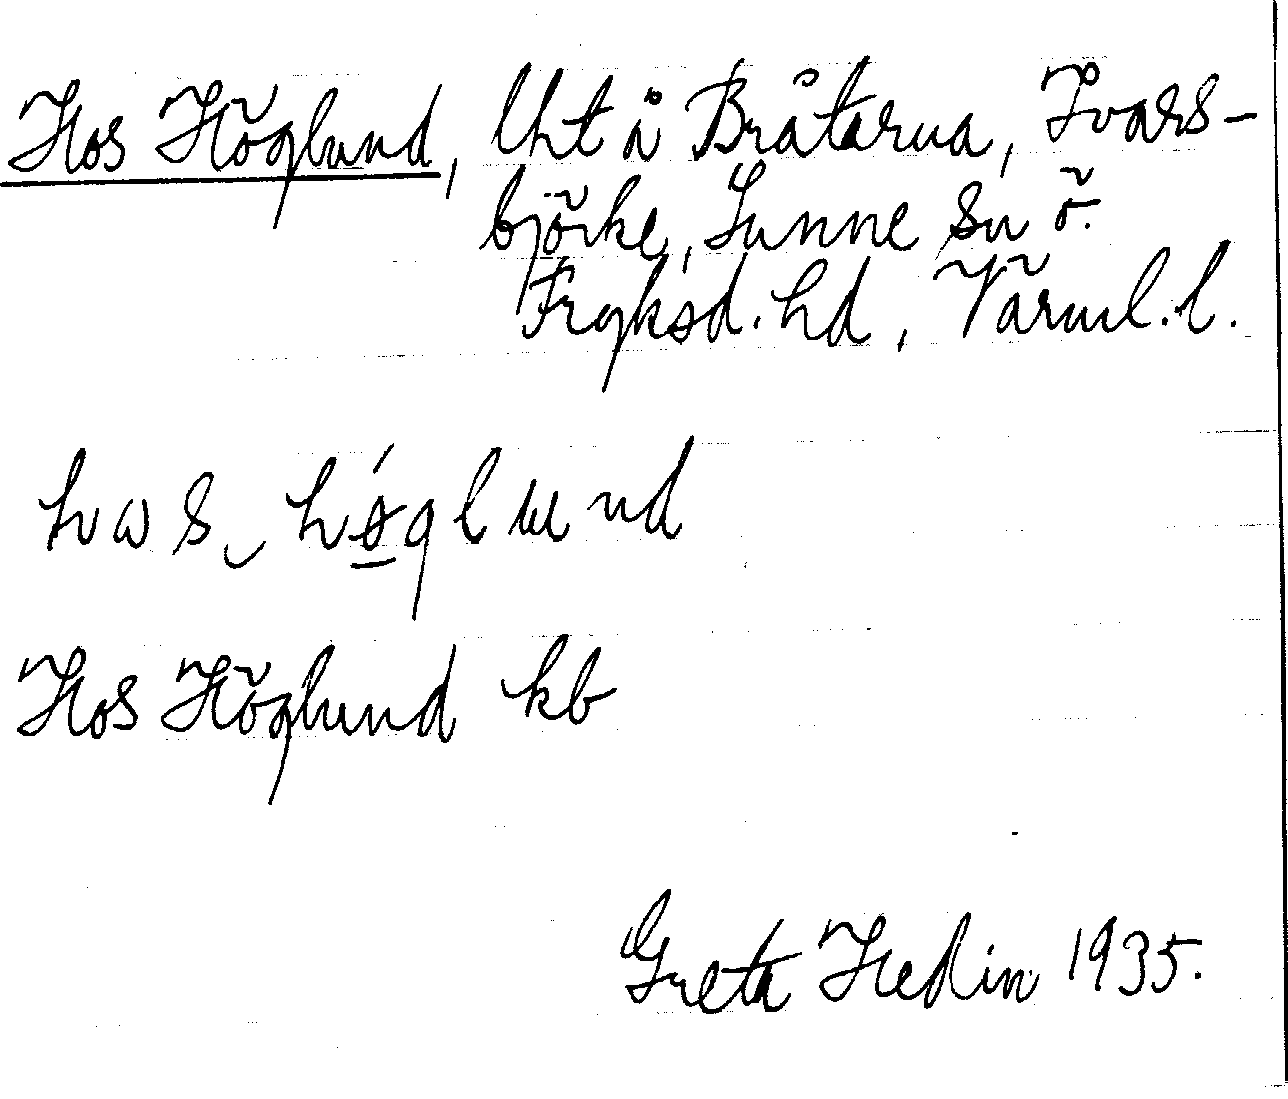 Hos Höglund, lht å Bråtarna, Ivars-
björke, Sunne sn ö.
Fryksd. hd, Värml. l.
hɷs‿hǿ̱glɯnd
Hos Höglund kb
Greta Hedin 1935.